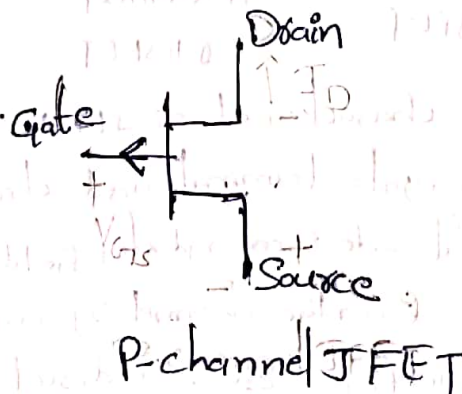 Drain
I_D
Gate
+
V_GS
+
-
Source
P-channel JFET